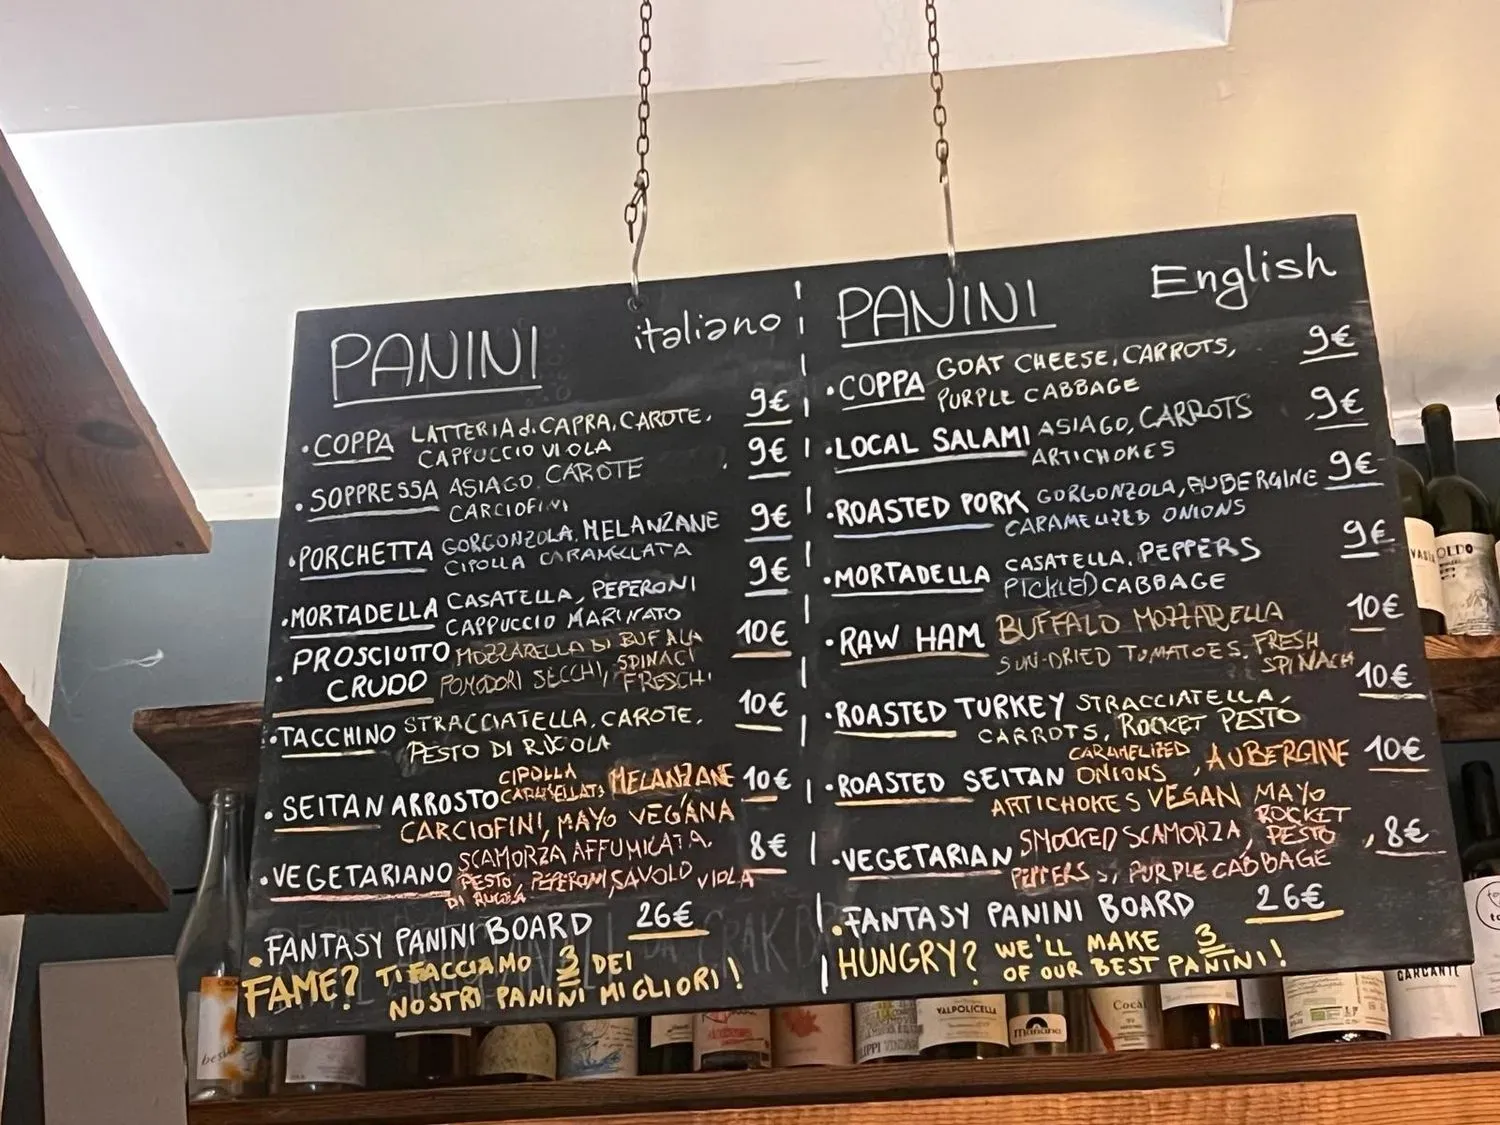 PANINI italiano
• COPPA LATTERIA di CAPRA, CAROTE,
CAPPUCCIO VIOLA
9€
• SOPPRESSA ASIAGO, CAROTE
CARCIOFINI
9€
• PORCHETTA GORGONZOLA, MELANZANE
CIPOLLA CARAMELLATA
9€
• MORTADELLA CASATELLA, PEPERONI
CAPPUCCIO MARINATO
9€
• PROSCIUTTO MOZZARELLA DI BUFALA
CRUDO POMODORI SECCHI, SPINACI
FRESCHI
10€
• TACCHINO STRACCIATELLA, CAROTE,
PESTO DI RUCOLA
10€
• SEITAN ARROSTO CIPOLLA
MELANZANE
CARCIOFINI, MAYO VEGANA
10€
• VEGETARIANO SCAMORZA AFFUMICATA,
PESTO, PEPERONI, SAVOLO VIOLA
DI RUCOLA
8€
• FANTASY PANINI BOARD 26€
FAME? TI FACCIAMO 3 DEI
NOSTRI PANINI MIGLIORI!
PANINI English
• COPPA GOAT CHEESE, CARROTS,
PURPLE CABBAGE
9€
• LOCAL SALAMI ASIAGO, CARROTS
ARTICHOKES
9€
• ROASTED PORK GORGONZOLA, AUBERGINE
CARAMELIZED ONIONS
9€
• MORTADELLA CASATELLA, PEPPERS
PICKLED CABBAGE
9€
• RAW HAM BUFFALO MOZZARELLA
SUN-DRIED TOMATOES, FRESH
SPINACH
10€
• ROASTED TURKEY STRACCIATELLA,
CARROTS, ROCKET PESTO
10€
• ROASTED SEITAN CARAMELIZED
ONIONS, AUBERGINE
ARTICHOKES VEGAN MAYO
10€
• VEGETARIAN SMOCKED SCAMORZA, ROCKET
PESTO
PEPPERS, PURPLE CABBAGE
8€
• FANTASY PANINI BOARD 26€
HUNGRY? WE'LL MAKE 3
OF OUR BEST PANINI!
OLDO
VALPOLICELLA
mañana
Cocài
GARGANTE